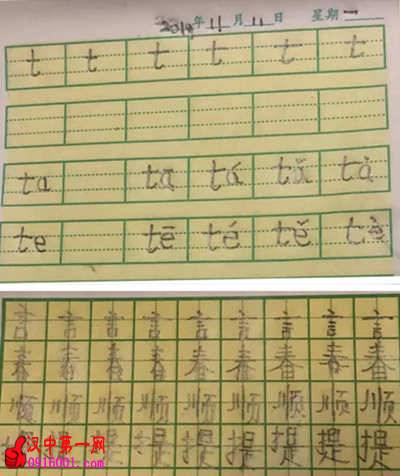 2019年11月11日 星期一
t t t t t t
ta tā tá tǎ tà
te tē té tě tè
言 言 言 言 言 言 言 言 言
春 春 春 春 春 春 春 春 春
顺 顺 顺 顺 顺 顺 顺 顺 顺
提 提 提 提 提 提 提 提 提
汉中第一网
0916001.com